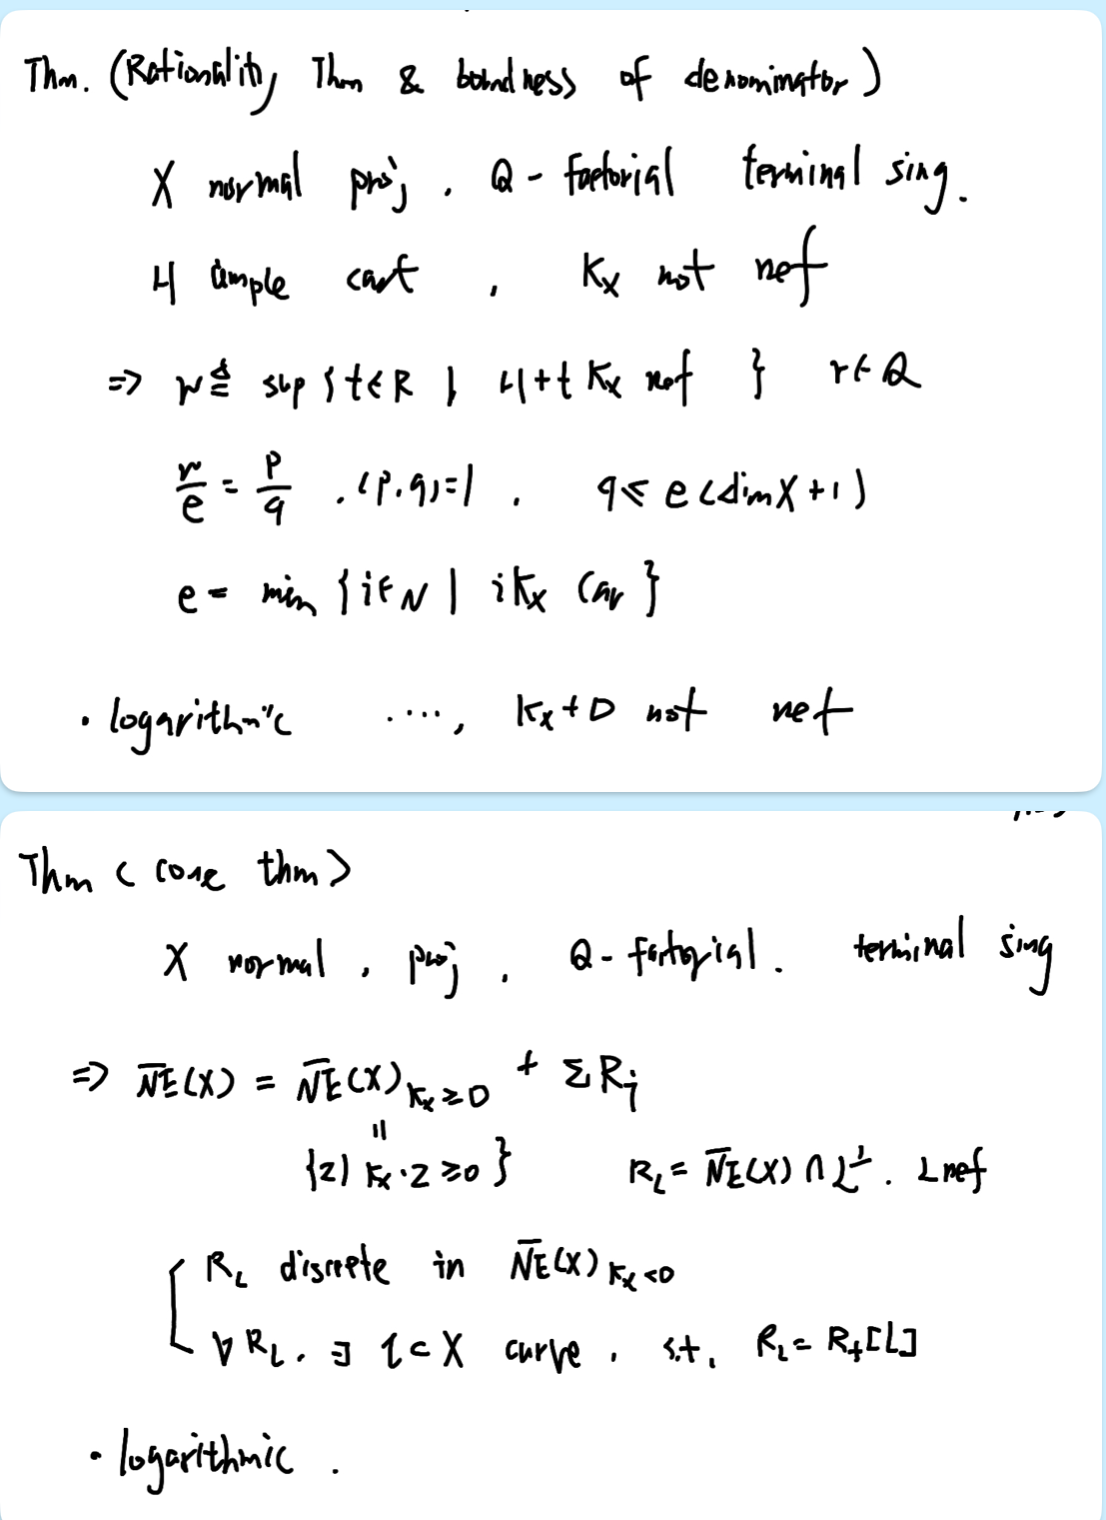 Thm. (Rationality Thm & boundness of denominator)
X normal proj. Q-factorial terminal sing.
H ample cart, Kx not nef
=> r ≜ sup {t∈R | H+tKx nef } r∈Q
r/e = p/q . (p,q)=1 , q ≤ e(dimX+1)
e = min {i∈N | iKx Car }
· logarithmic ...., Kx+D not nef
Thm < cone thm >
X normal, proj, Q-factorial. terminal sing
=> N̅E̅(X) = N̅E̅(X)Kx≥0 + ΣRj
=
{z| Kx·z≥0} RL = N̅E̅(X) ∩ L⊥. L nef
RL discrete in N̅E̅(X)Kx<0
∀ RL. ∃ l⊂X curve, s.t. RL = R+[L]
· logarithmic.